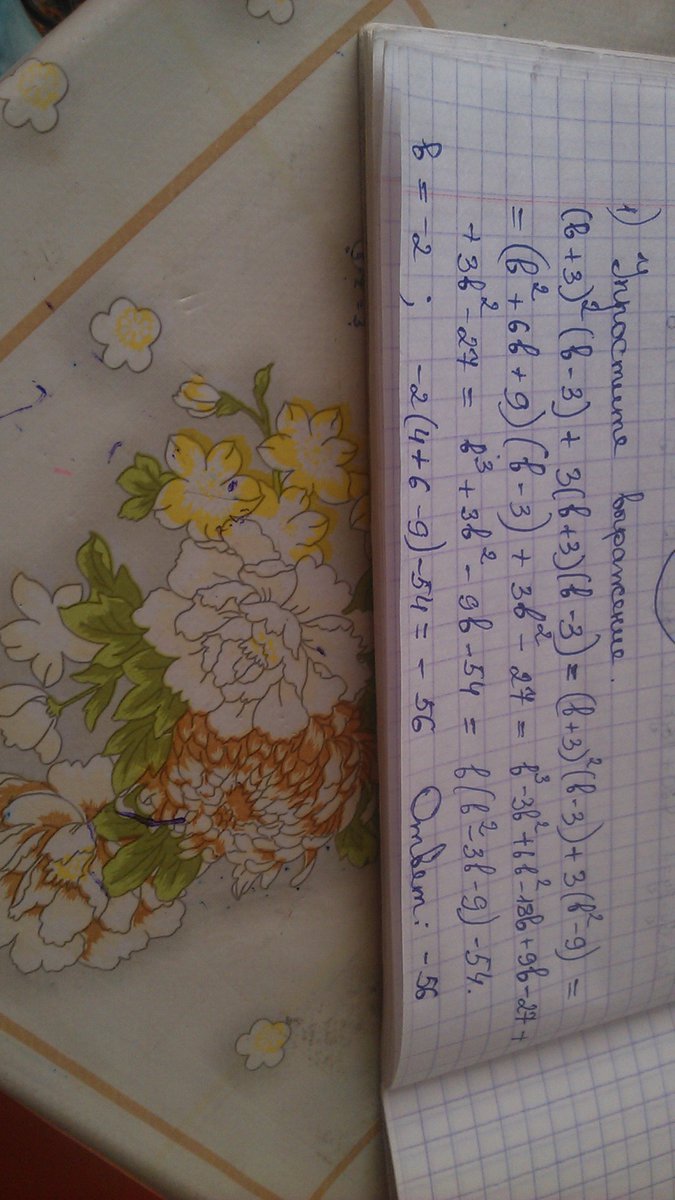 1) Упростите выражение.
(b+3)²(b-3) + 3(b+3)(b-3) = (b+3)²(b-3) + 3(b²-9) =
= (b²+6b+9)(b-3) + 3b² - 27 = b³-3b²+6b²-18b+9b-27+
+ 3b² - 27 = b³ + 3b² - 9b - 54 = b(b²-3b-9) - 54.
b = -2 ; -2(4+6-9) - 54 = - 56 Ответ: -56